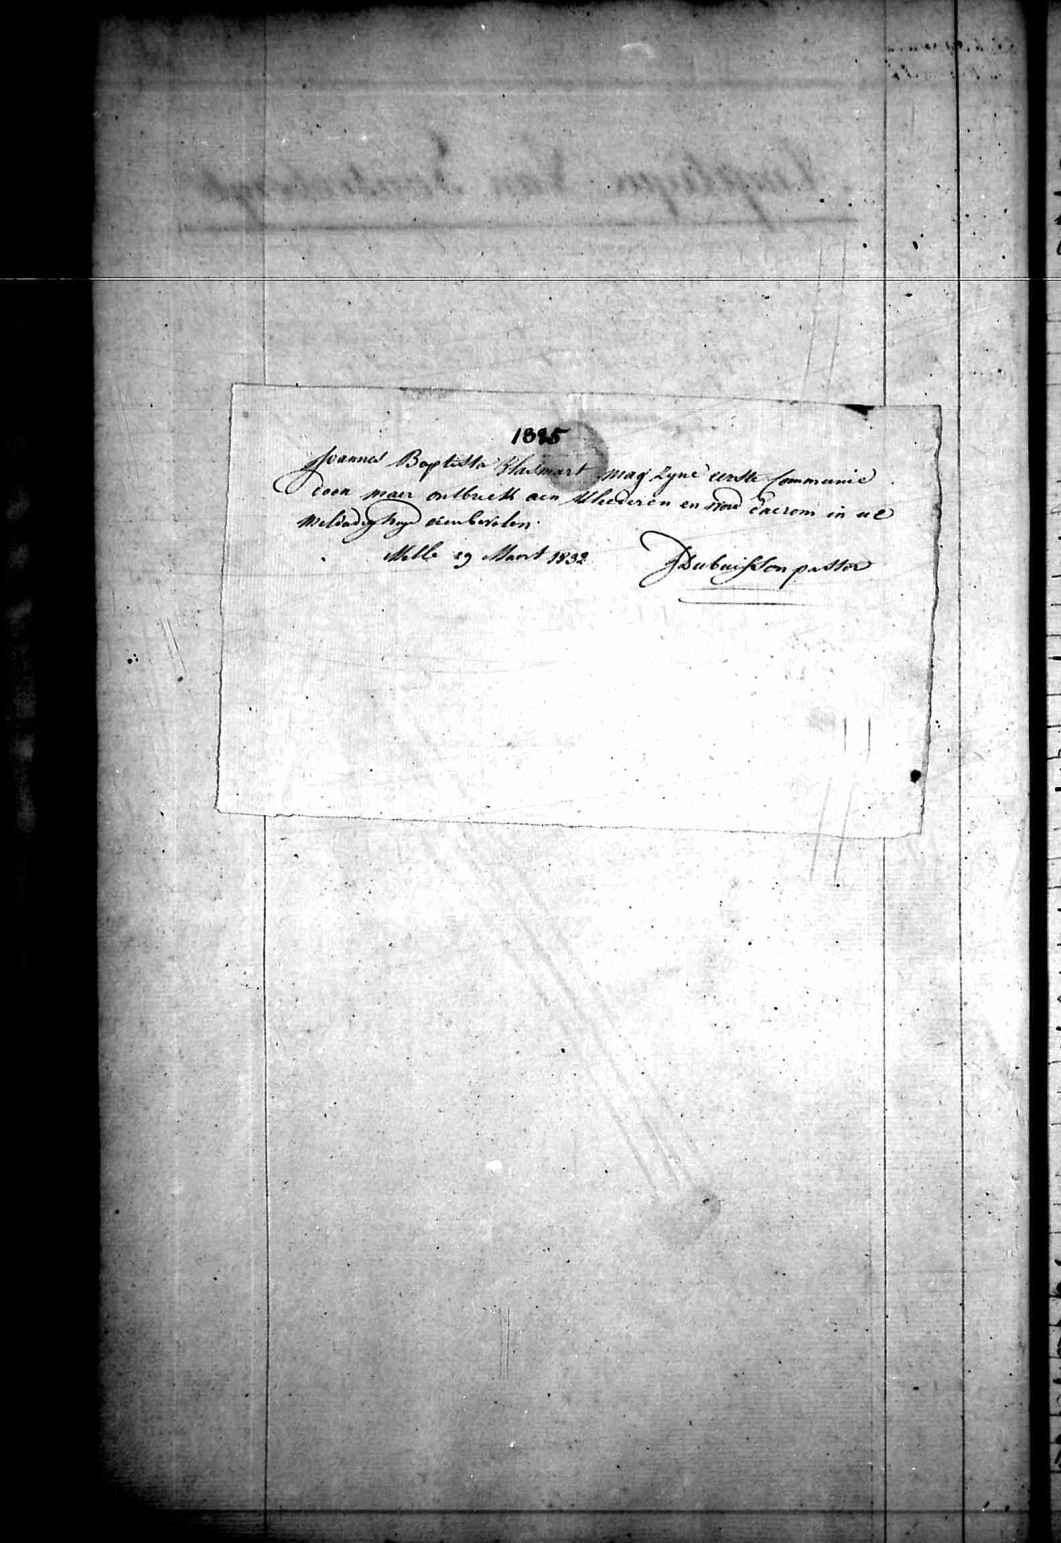 1825
Joannes Baptista Hasmart mag zyne eerste Communie
doen maer ontbreck aen kleederen en word daerom in ue
weldadigheyd aenbevolen.
Melle 29 Maert 1832 JDubuisson pastor